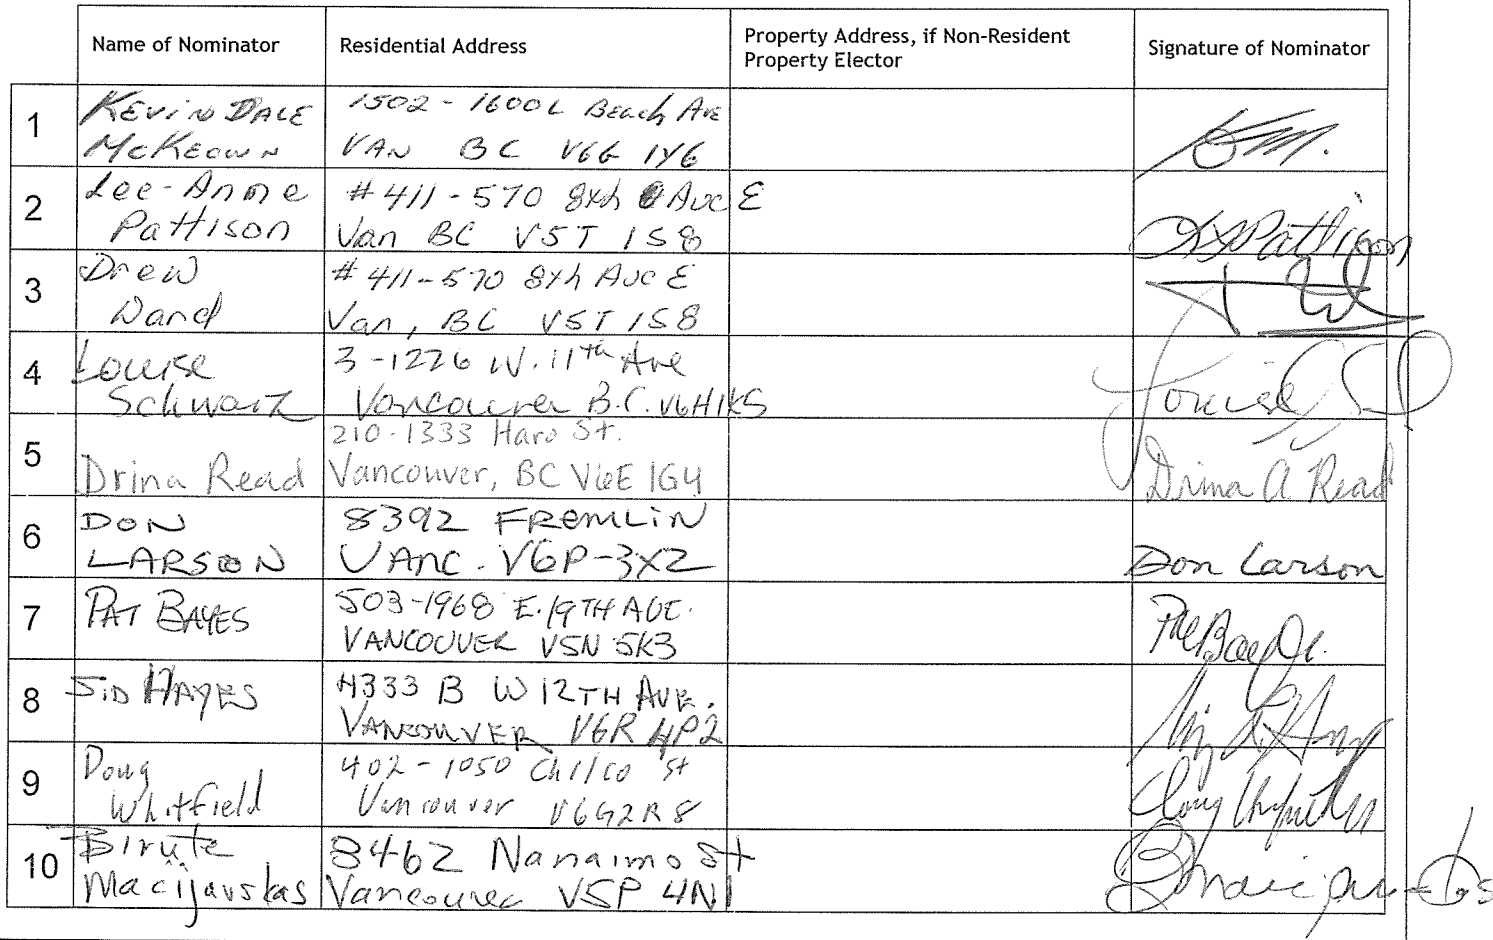 Name of Nominator
Residential Address
Property Address, if Non-Resident
Property Elector
Signature of Nominator
1
KEVIN DALE
McKEOWN
1502 - 1600L Beach Ave
VAN BC V6G 1Y6
2
Lee-Anne
Pattison
#411-570 8th Ave E
Van BC V5T 1S8
Pattison
3
Drew
Ward
#411-570 8th Ave E
Van, BC V5T 1S8
4
Louise
Schwarz
3-1226 W. 11th Ave
Vancouver B.C. V6H1K5
Louise
5
Drina Read
210-1333 Haro St.
Vancouver, BC V6E 1G4
Drina A Read
6
DON
LARSON
8392 FREMLIN
VANC. V6P-3X2
Don Larson
7
PAT BAYES
503-1968 E.19TH AVE.
VANCOUVER V5N 5K3
8
SID HAYES
4333 B W 12TH AVE.
VANCOUVER V6R 4P2
9
Doug
Whitfield
402-1050 Chilco St
Vancouver V6G2R8
10
Birute
Macijauskas
8462 Nanaimo St
Vancouver V5P 4N1